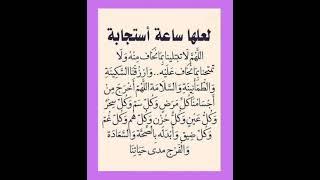 لعلها ساعة أستجابة
اللَّهُمَّ لَا تَبْتَلِينَا بِمَا نَخَافُ مِنْهُ وَلَا
تَمْتَحِنَا بِمَا نَخَافُ عَلَيْهِ.. وَارْزُقْنَا السَّكِينَةَ
وَالطُّمَأْنِينَةَ وَالسَّلَامَةَ اللَّهُمَّ أَخْرِجْ مِنْ
أَجْسَامِنَا كُلَّ مَرَضٍ وَكُلَّ سَمٍّ وَكُلَّ سِحْرٍ
وَكُلَّ عَيْنٍ وَكُلَّ حُزْنٍ وَكُلَّ هَمٍّ وَكُلَّ غَمٍّ
وَكُلَّ ضِيقٍ وَأَبْدِلْهُ بِالصِّحَّةِ وَالسَّعَادَةِ
وَالْفَرَجِ مَدَى حَيَاتِنَا